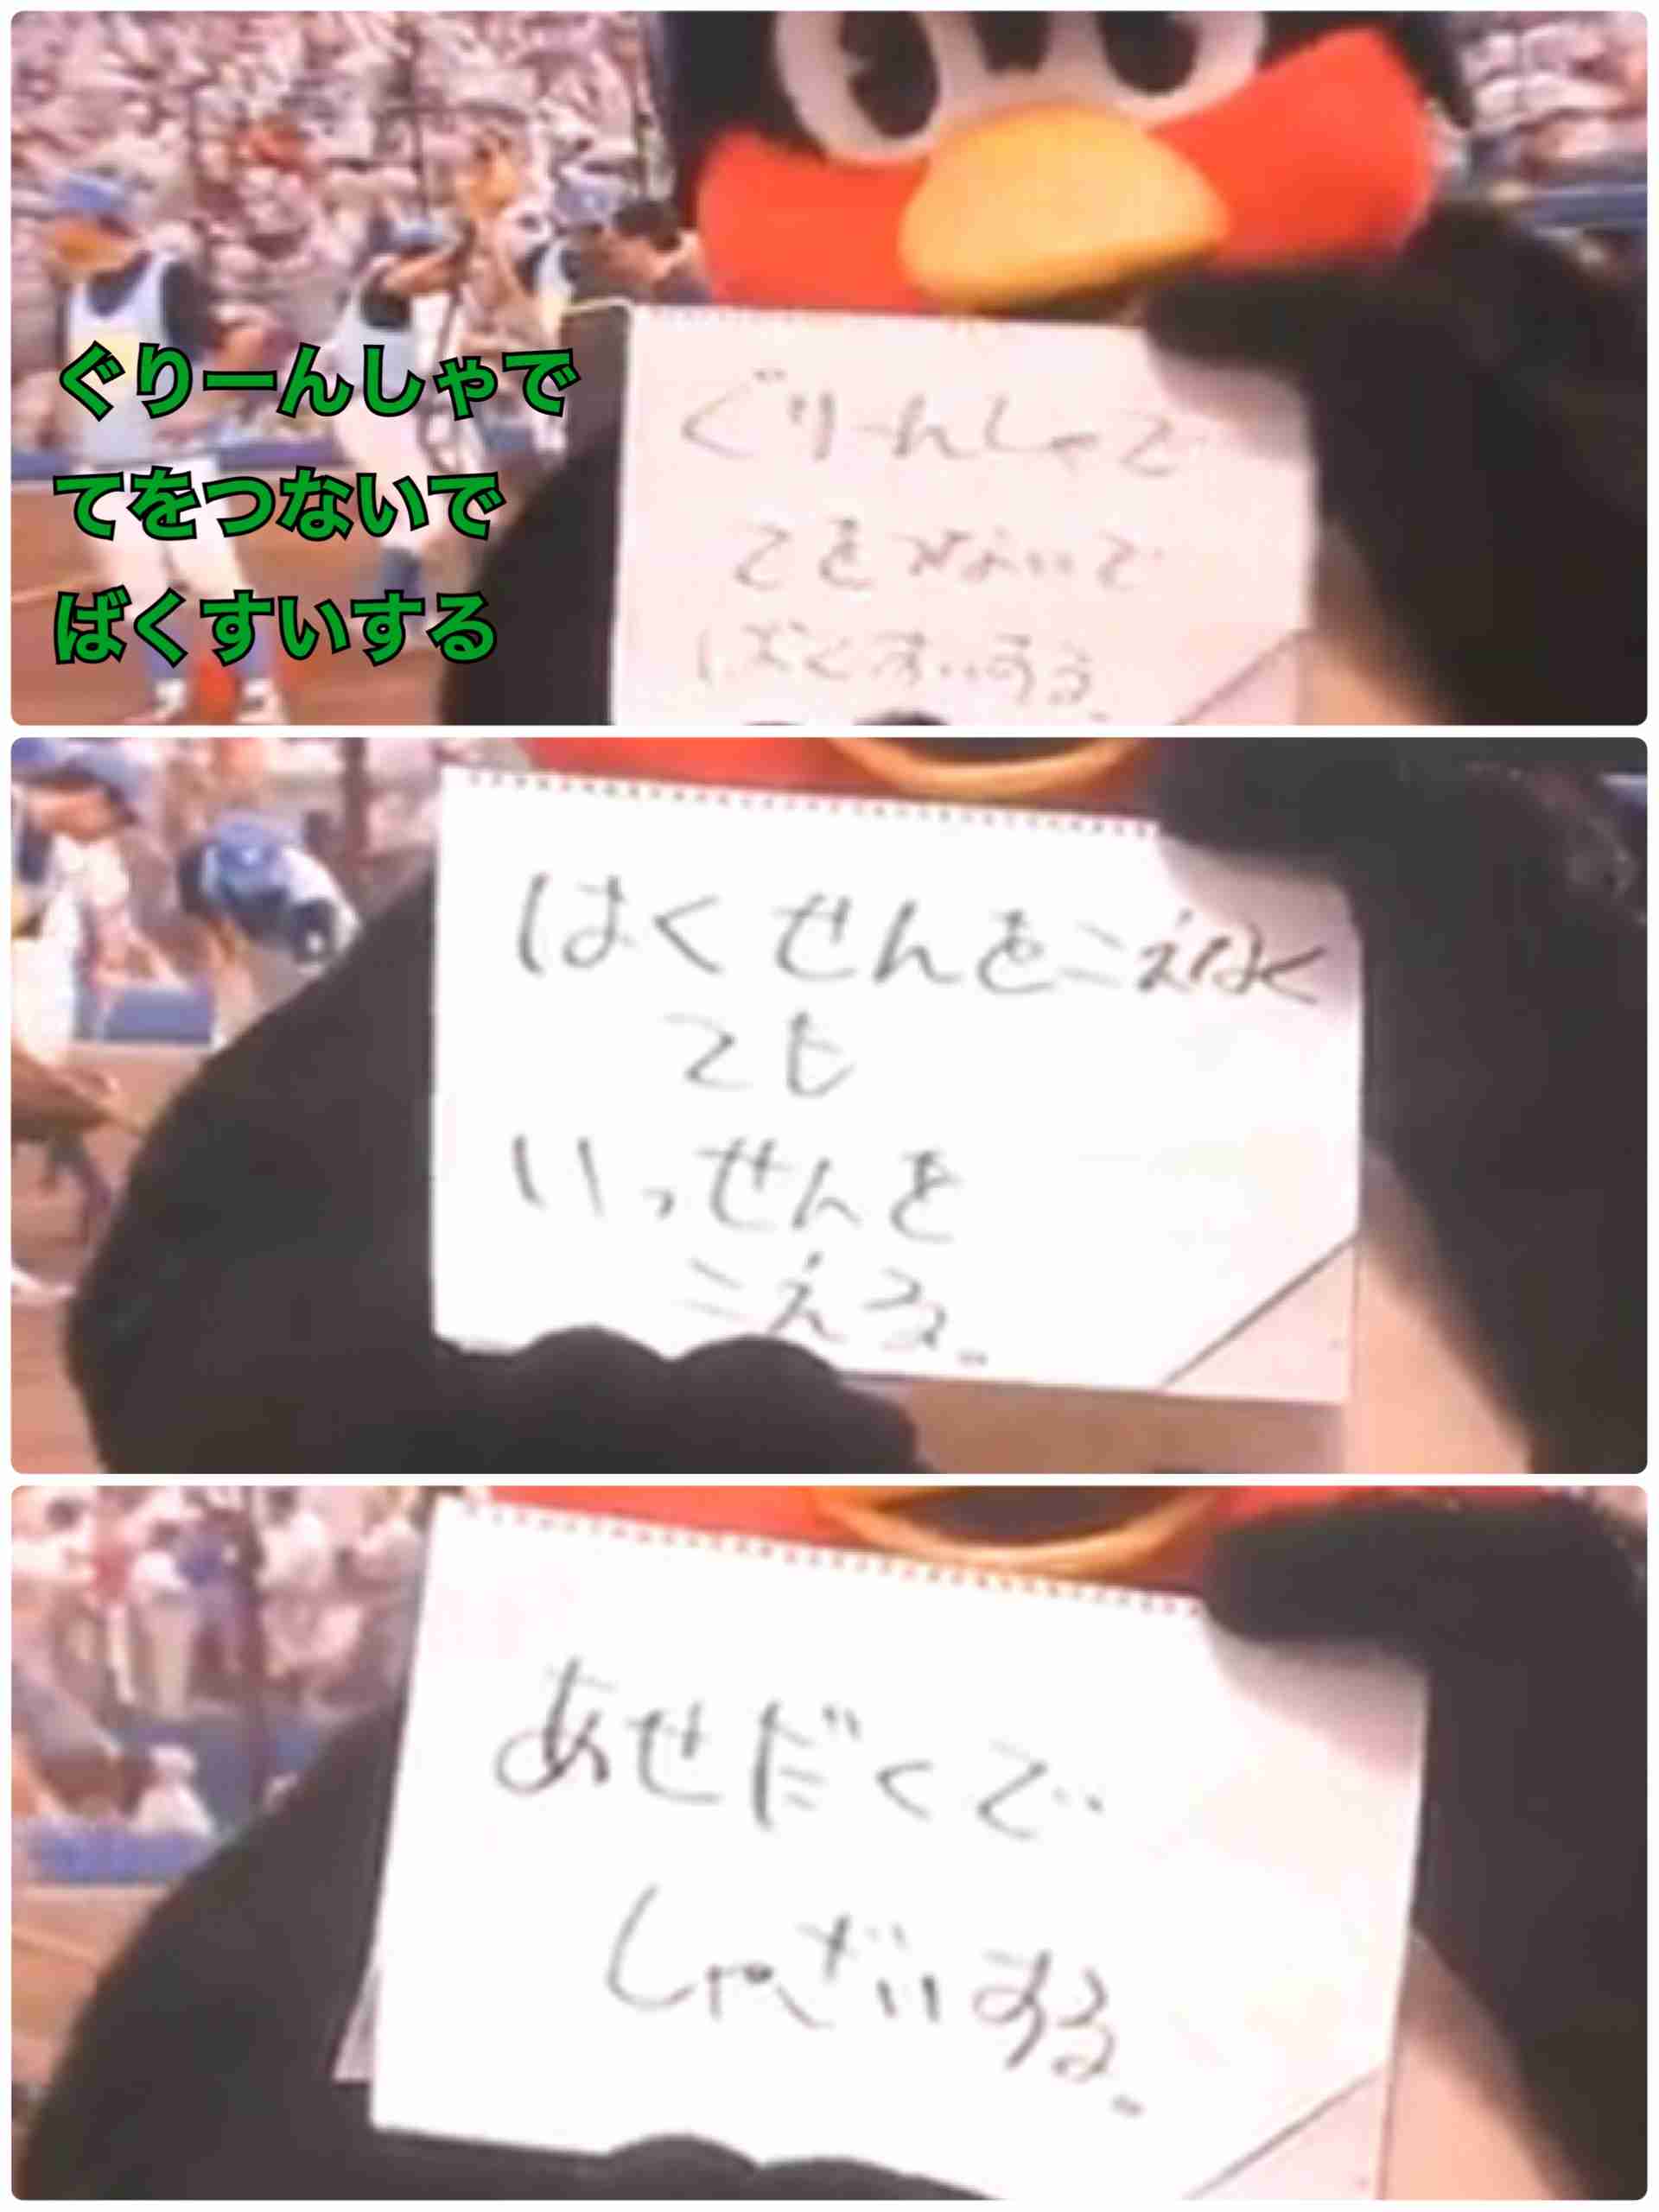 ぐりーんしゃで
てをつないで
ばくすいする
ぐりーんしゃで
てをつないで
ばくすいする。
はくせんをこえなく
ても
いっせんを
こえる。
あせだくで
しゃざいする。